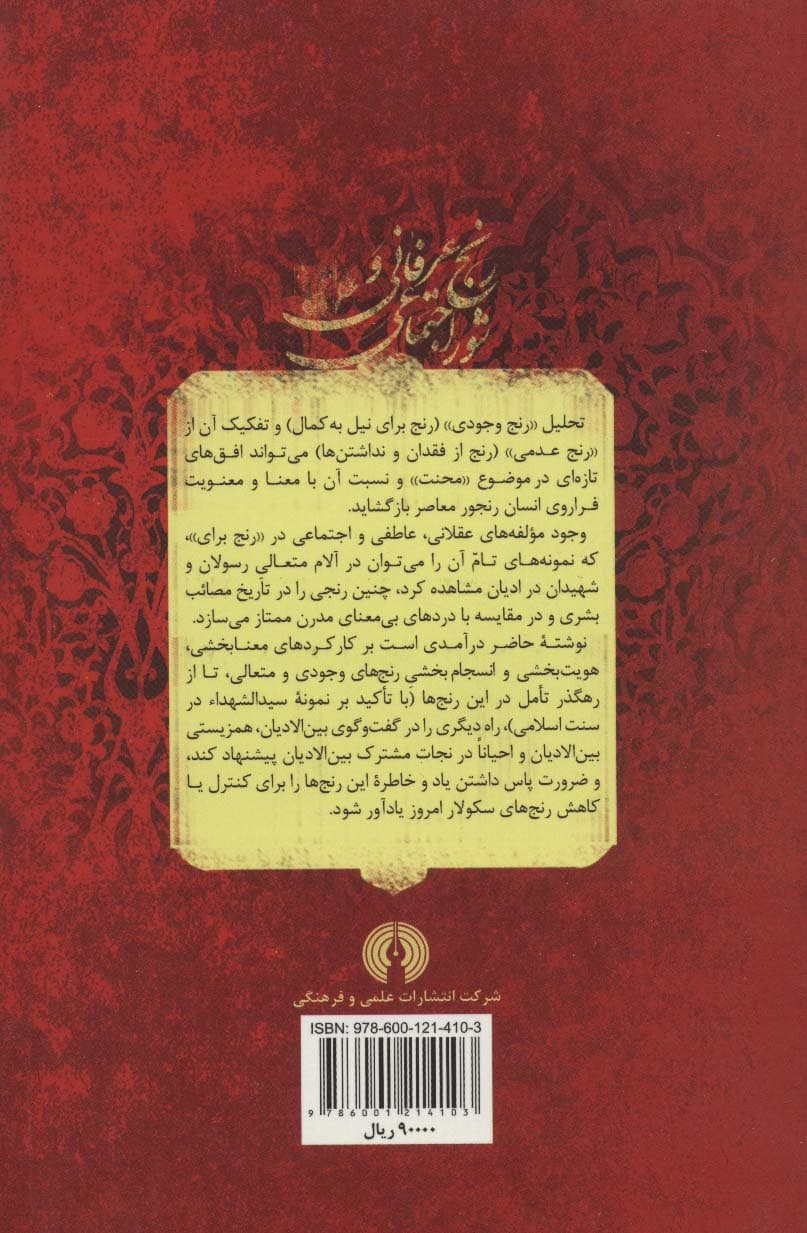 رنج عرفانی و
شور اجتماعی
تحلیل «رنج وجودی» (رنج برای نیل به کمال) و تفکیک آن از
«رنج عدمی» (رنج از فقدان و نداشتن‌ها) می‌تواند افق‌های
تازه‌ای در موضوع «محنت» و نسبت آن با معنا و معنویت
فراروی انسان رنجور معاصر بازگشاید.
وجود مؤلفه‌های عقلانی، عاطفی و اجتماعی در «رنج برای»،
که نمونه‌های تامّ آن را می‌توان در آلام متعالی رسولان و
شهیدان در ادیان مشاهده کرد، چنین رنجی را در تأریخ مصائب
بشری و در مقایسه با دردهای بی‌معنای مدرن ممتاز می‌سازد.
نوشتهٔ حاضر درآمدی است بر کارکردهای معنابخشی،
هویت‌بخشی و انسجام‌بخشیِ رنج‌های وجودی و متعالی، تا از
رهگذر تأمل در این رنج‌ها (با تأکید بر نمونهٔ سیدالشهداء در
سنت اسلامی)، راه دیگری را در گفت‌وگوی بین‌الادیان، همزیستی
بین‌الادیان و احیاناً در نجات مشترک بین‌الادیان پیشنهاد کند،
و ضرورت پاس داشتن یاد و خاطرهٔ این رنج‌ها را برای کنترل یا
کاهش رنج‌های سکولار امروز یادآور شود.
شرکت انتشارات علمی و فرهنگی
ISBN: 978-600-121-410-3
9 786001 214103
۹۰۰۰۰ ریال